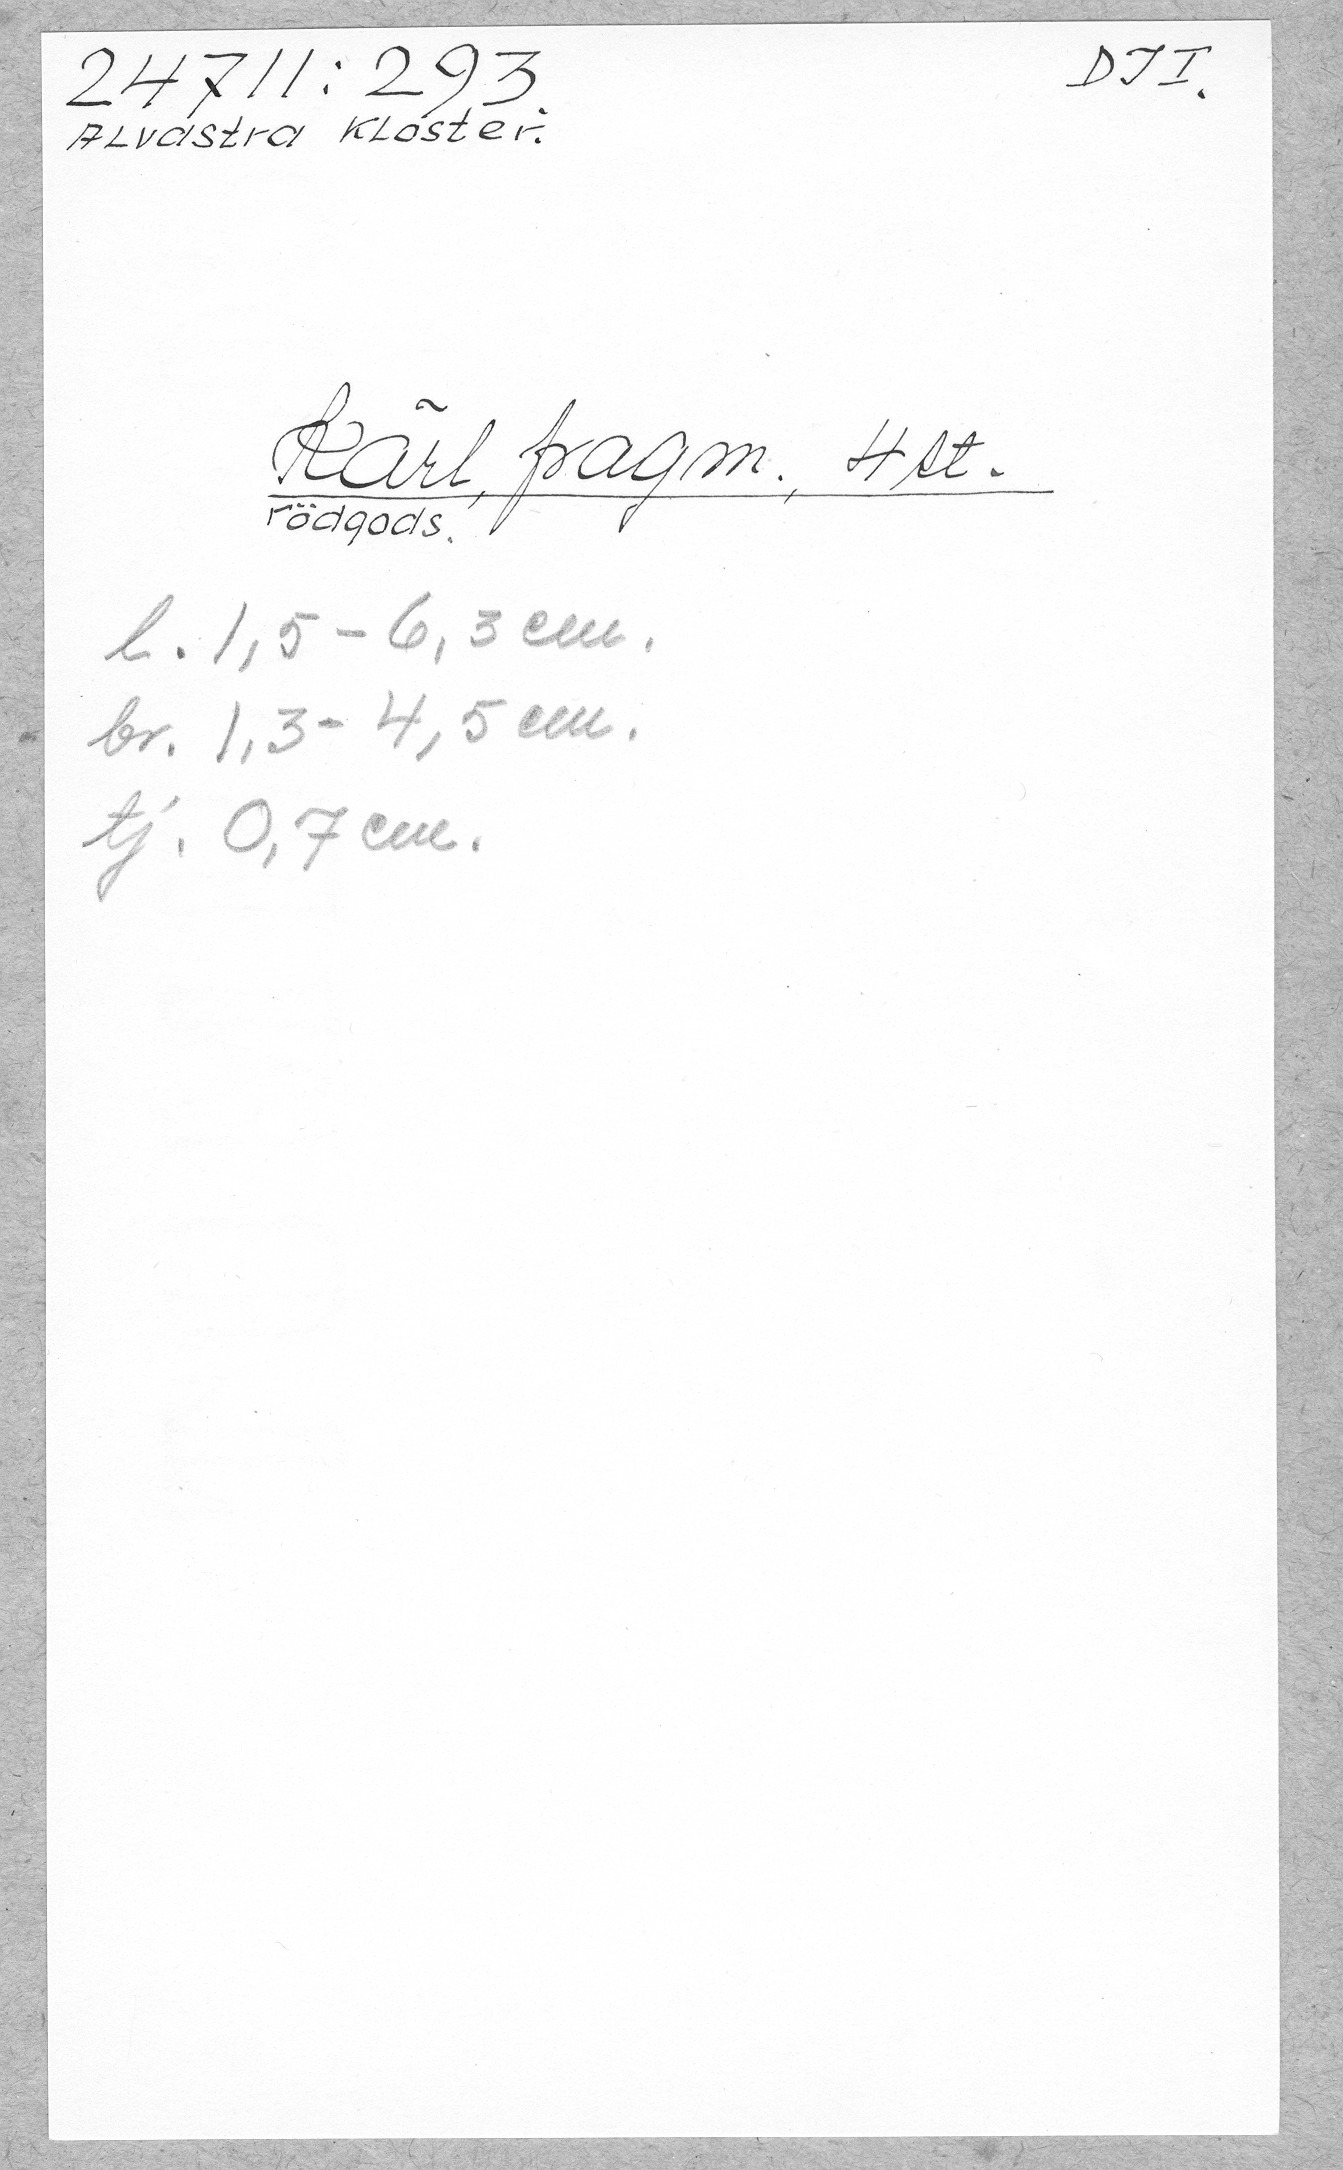 24711:293. DJI.
Alvastra Kloster.
Kärl, fragm., 4 st.
rödgods.
l. 1,5-6,3 cm.
br. 1,3-4,5 cm.
tj. 0,7 cm.